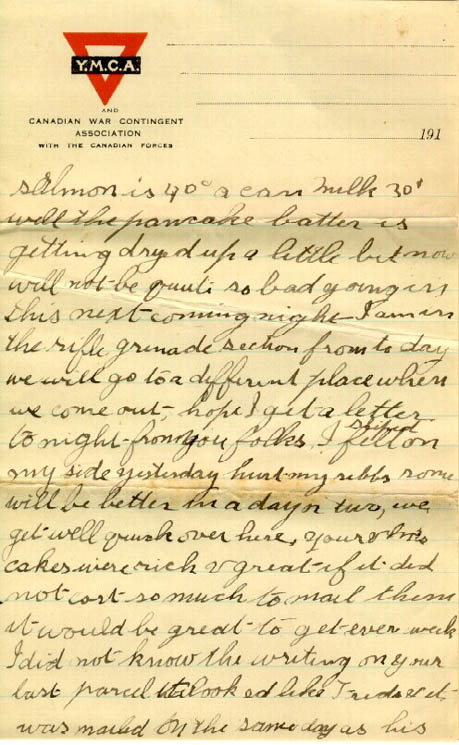 Y.M.C.A.
AND
CANADIAN WAR CONTINGENT
ASSOCIATION
WITH THE CANADIAN FORCES
191
salmon is 40¢ a can milk 30¢
well the pancake batter is
getting dryed up a little bit now
will not be quite so bad going in
this next coming night I am in
the rifle grenade section from to day
we will go to a different place when
we come out, hope I get a letter
to night from you folks, I sliped fell on
my side yesterday hurt my ribbs some
will be better in a day or two, we
get well quick over here, your &
cakes were rich & great if it did
not cost so much to mail them
it would be great to get ever week
I did not know the writing on your
last parcel it looked like it
was mailed on the same day as his